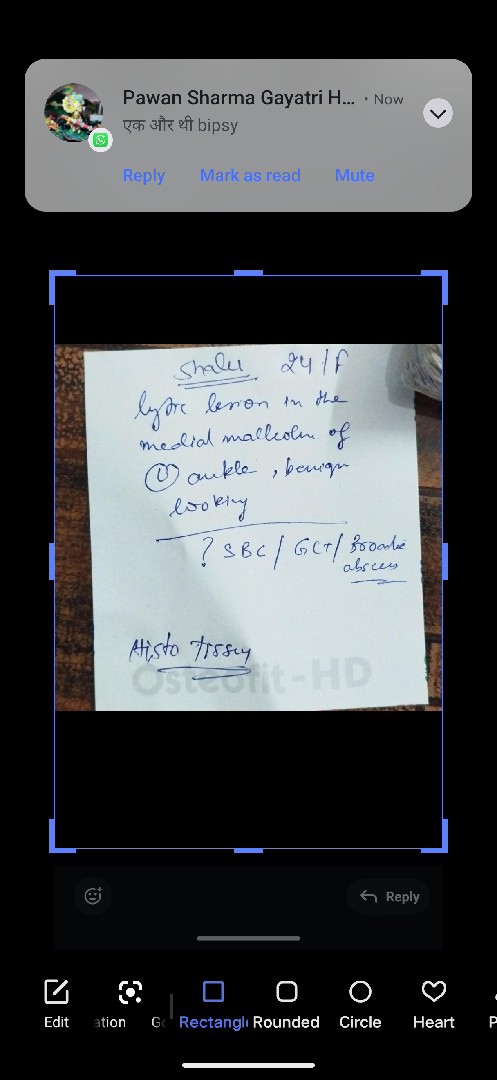 Pawan Sharma Gayatri H... • Now
एक और थी bipsy
Reply Mark as read Mute
Shalu 24/F
lytic lesion in the
medial malleolu of
(L) ankle, benign
looking
? SBC / GCT / Broadie
abscess
Histo Tissue
Osteofit-HD
Reply
Edit ation Go Rectangle Rounded Circle Heart P